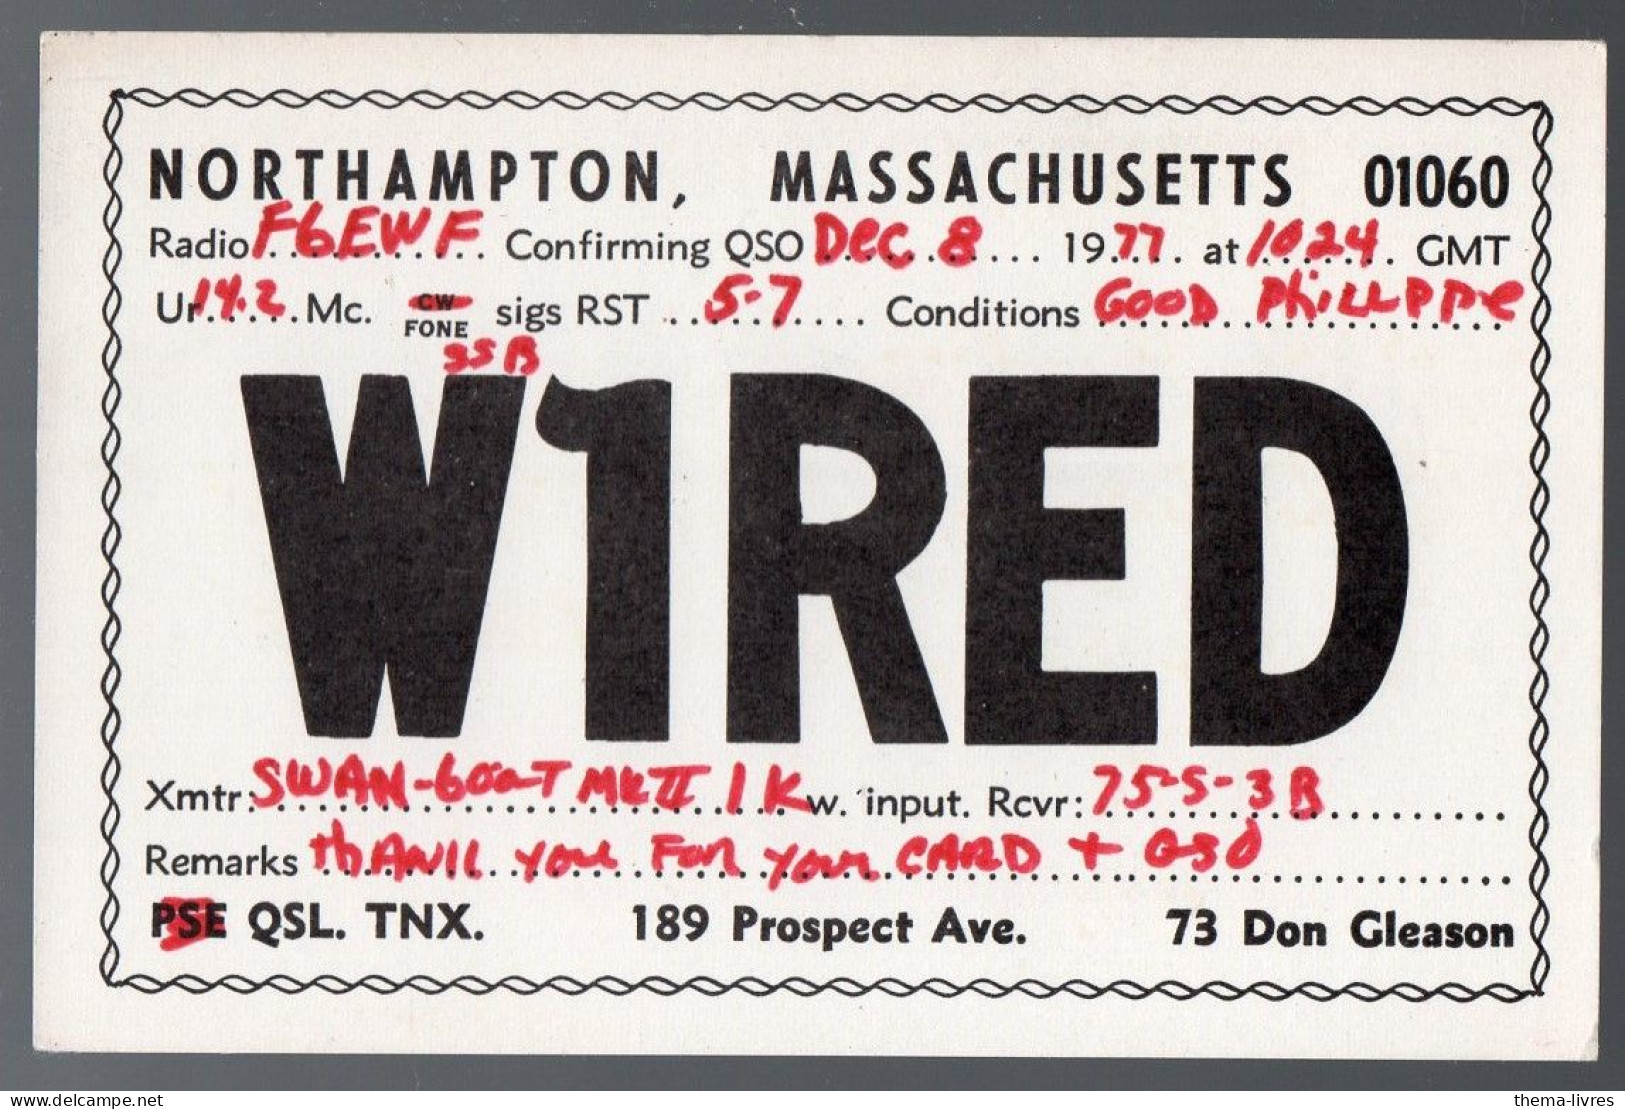 NORTHAMPTON, MASSACHUSETTS 01060
Radio F6EWF Confirming QSO Dec 8 1977 at 1024 GMT
Ur 14.2 Mc. CW FONE SSB sigs RST 5-7 Conditions GOOD PhiLLPPe
W1RED
Xmtr: SWAN-600-T MK II 1 Kw. input. Rcvr: 75-S-3B
Remarks thANK you For your CARD + QSO
PSE QSL. TNX. 189 Prospect Ave. 73 Don Gleason
delcampe.net
thema-livres